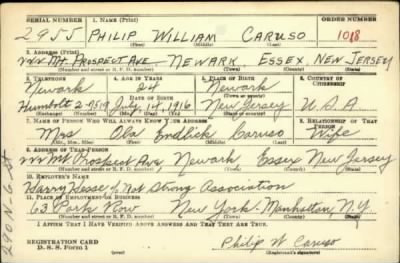 SERIAL NUMBER 1. NAME (Print)
2955 PHILIP WILLIAM CARUSO 1018
(First) (Middle) (Last)
2. ADDRESS (Print)
MT. PROSPECT AVE. NEWARK ESSEX NEW JERSEY
(Number and street or R. F. D. number) (Town) (County) (State)
3. TELEPHONE 4. AGE IN YEARS 5. PLACE OF BIRTH 6. COUNTRY OF CITIZENSHIP
Newark 24 Newark
DATE OF BIRTH (Town or county)
Humbolt 2-9519 July 1st 1916 New Jersey U.S.A
(Exchange) (Number) (Mo.) (Day) (Yr.) (State or country)
7. NAME OF PERSON WHO WILL ALWAYS KNOW YOUR ADDRESS 8. RELATIONSHIP OF THAT PERSON
Mrs Ola Endlick Caruso Wife
(Mr., Mrs., Miss) (First) (Middle) (Last)
9. ADDRESS OF THAT PERSON
Mt Prospect Ave, Newark Essex New Jersey
(Number and street or R. F. D. number) (Town) (County) (State)
10. EMPLOYER'S NAME
Harry Hesse Nat Strong Association
11. PLACE OF EMPLOYMENT OR BUSINESS
63 Park Row New York - Manhattan, N.Y
(Number and street or R. F. D. number) (Town) (County) (State)
I AFFIRM THAT I HAVE VERIFIED ABOVE ANSWERS AND THAT THEY ARE TRUE.
REGISTRATION CARD
D. S. S. Form 1
Philip W Caruso
(Registrant's signature)
290 N-6 St